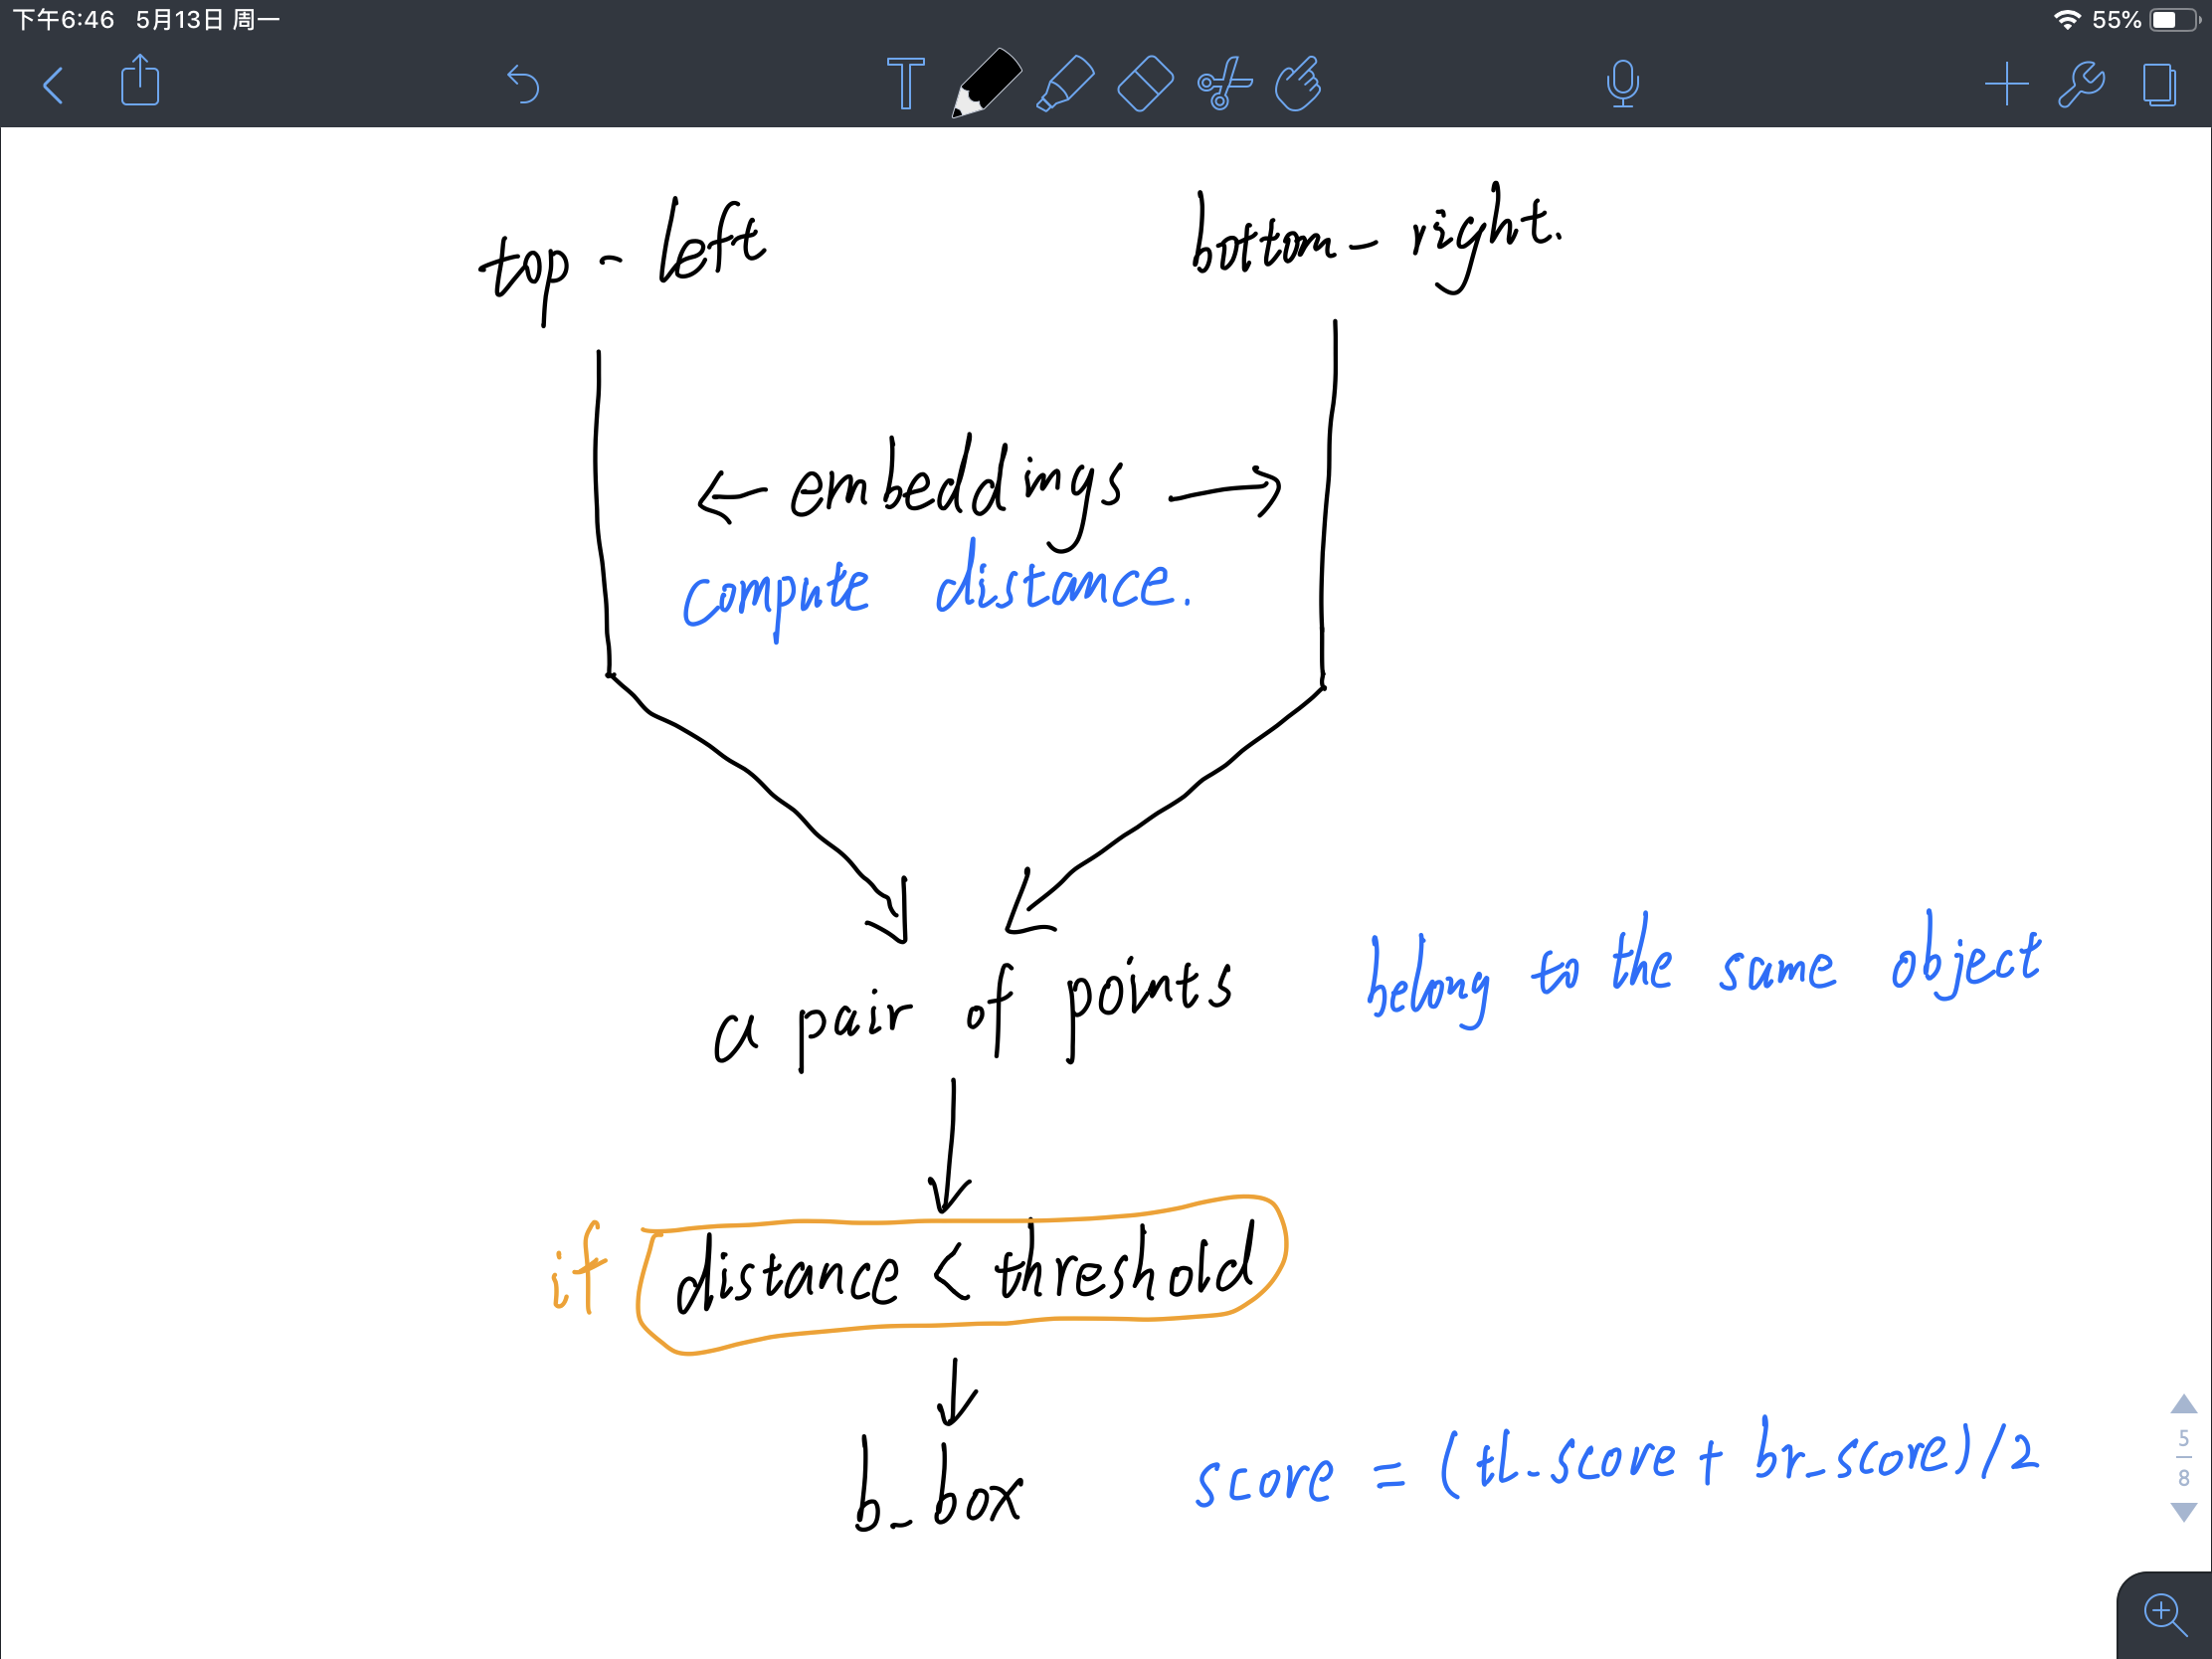 下午6:46 5月13日 周一 55%
T
top - left bottom - right.
← embeddings →
compute distance.
a pair of points belong to the same object
if distance < threshold
b_box score = (tl_score + br_score)/2
5
8